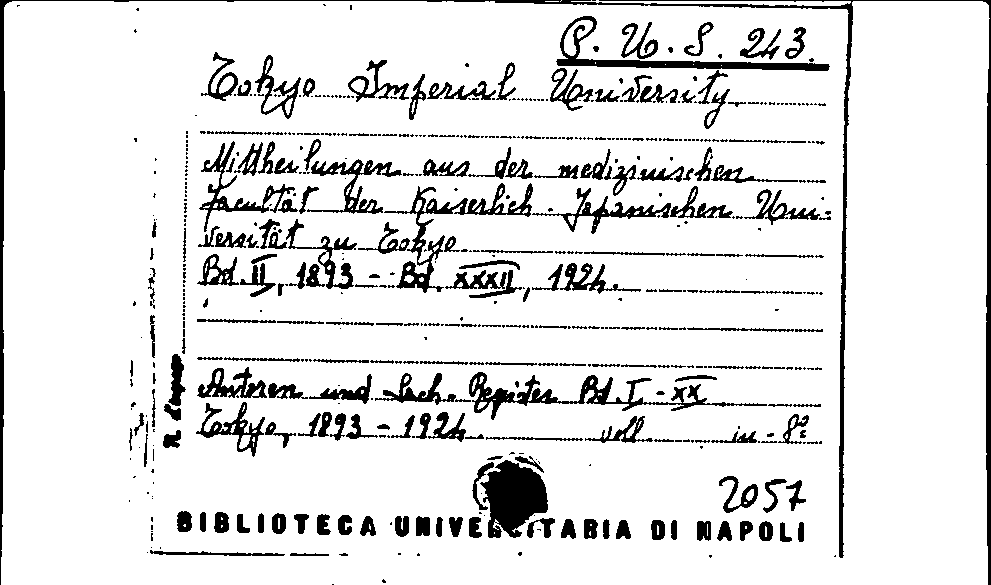 P. U. S. 243.
Tokyo Imperial University.
Mittheilungen aus der medizinischen
Facultät der Kaiserlich-Japanischen Uni-
versität zu Tokyo
Bd. II, 1893 - Bd. XXXII, 1924.
Autoren und Sach-Register Bd. I - XX
Tokyo, 1893 - 1924. voll. in-8º
2057
BIBLIOTECA UNIVERSITARIA DI NAPOLI